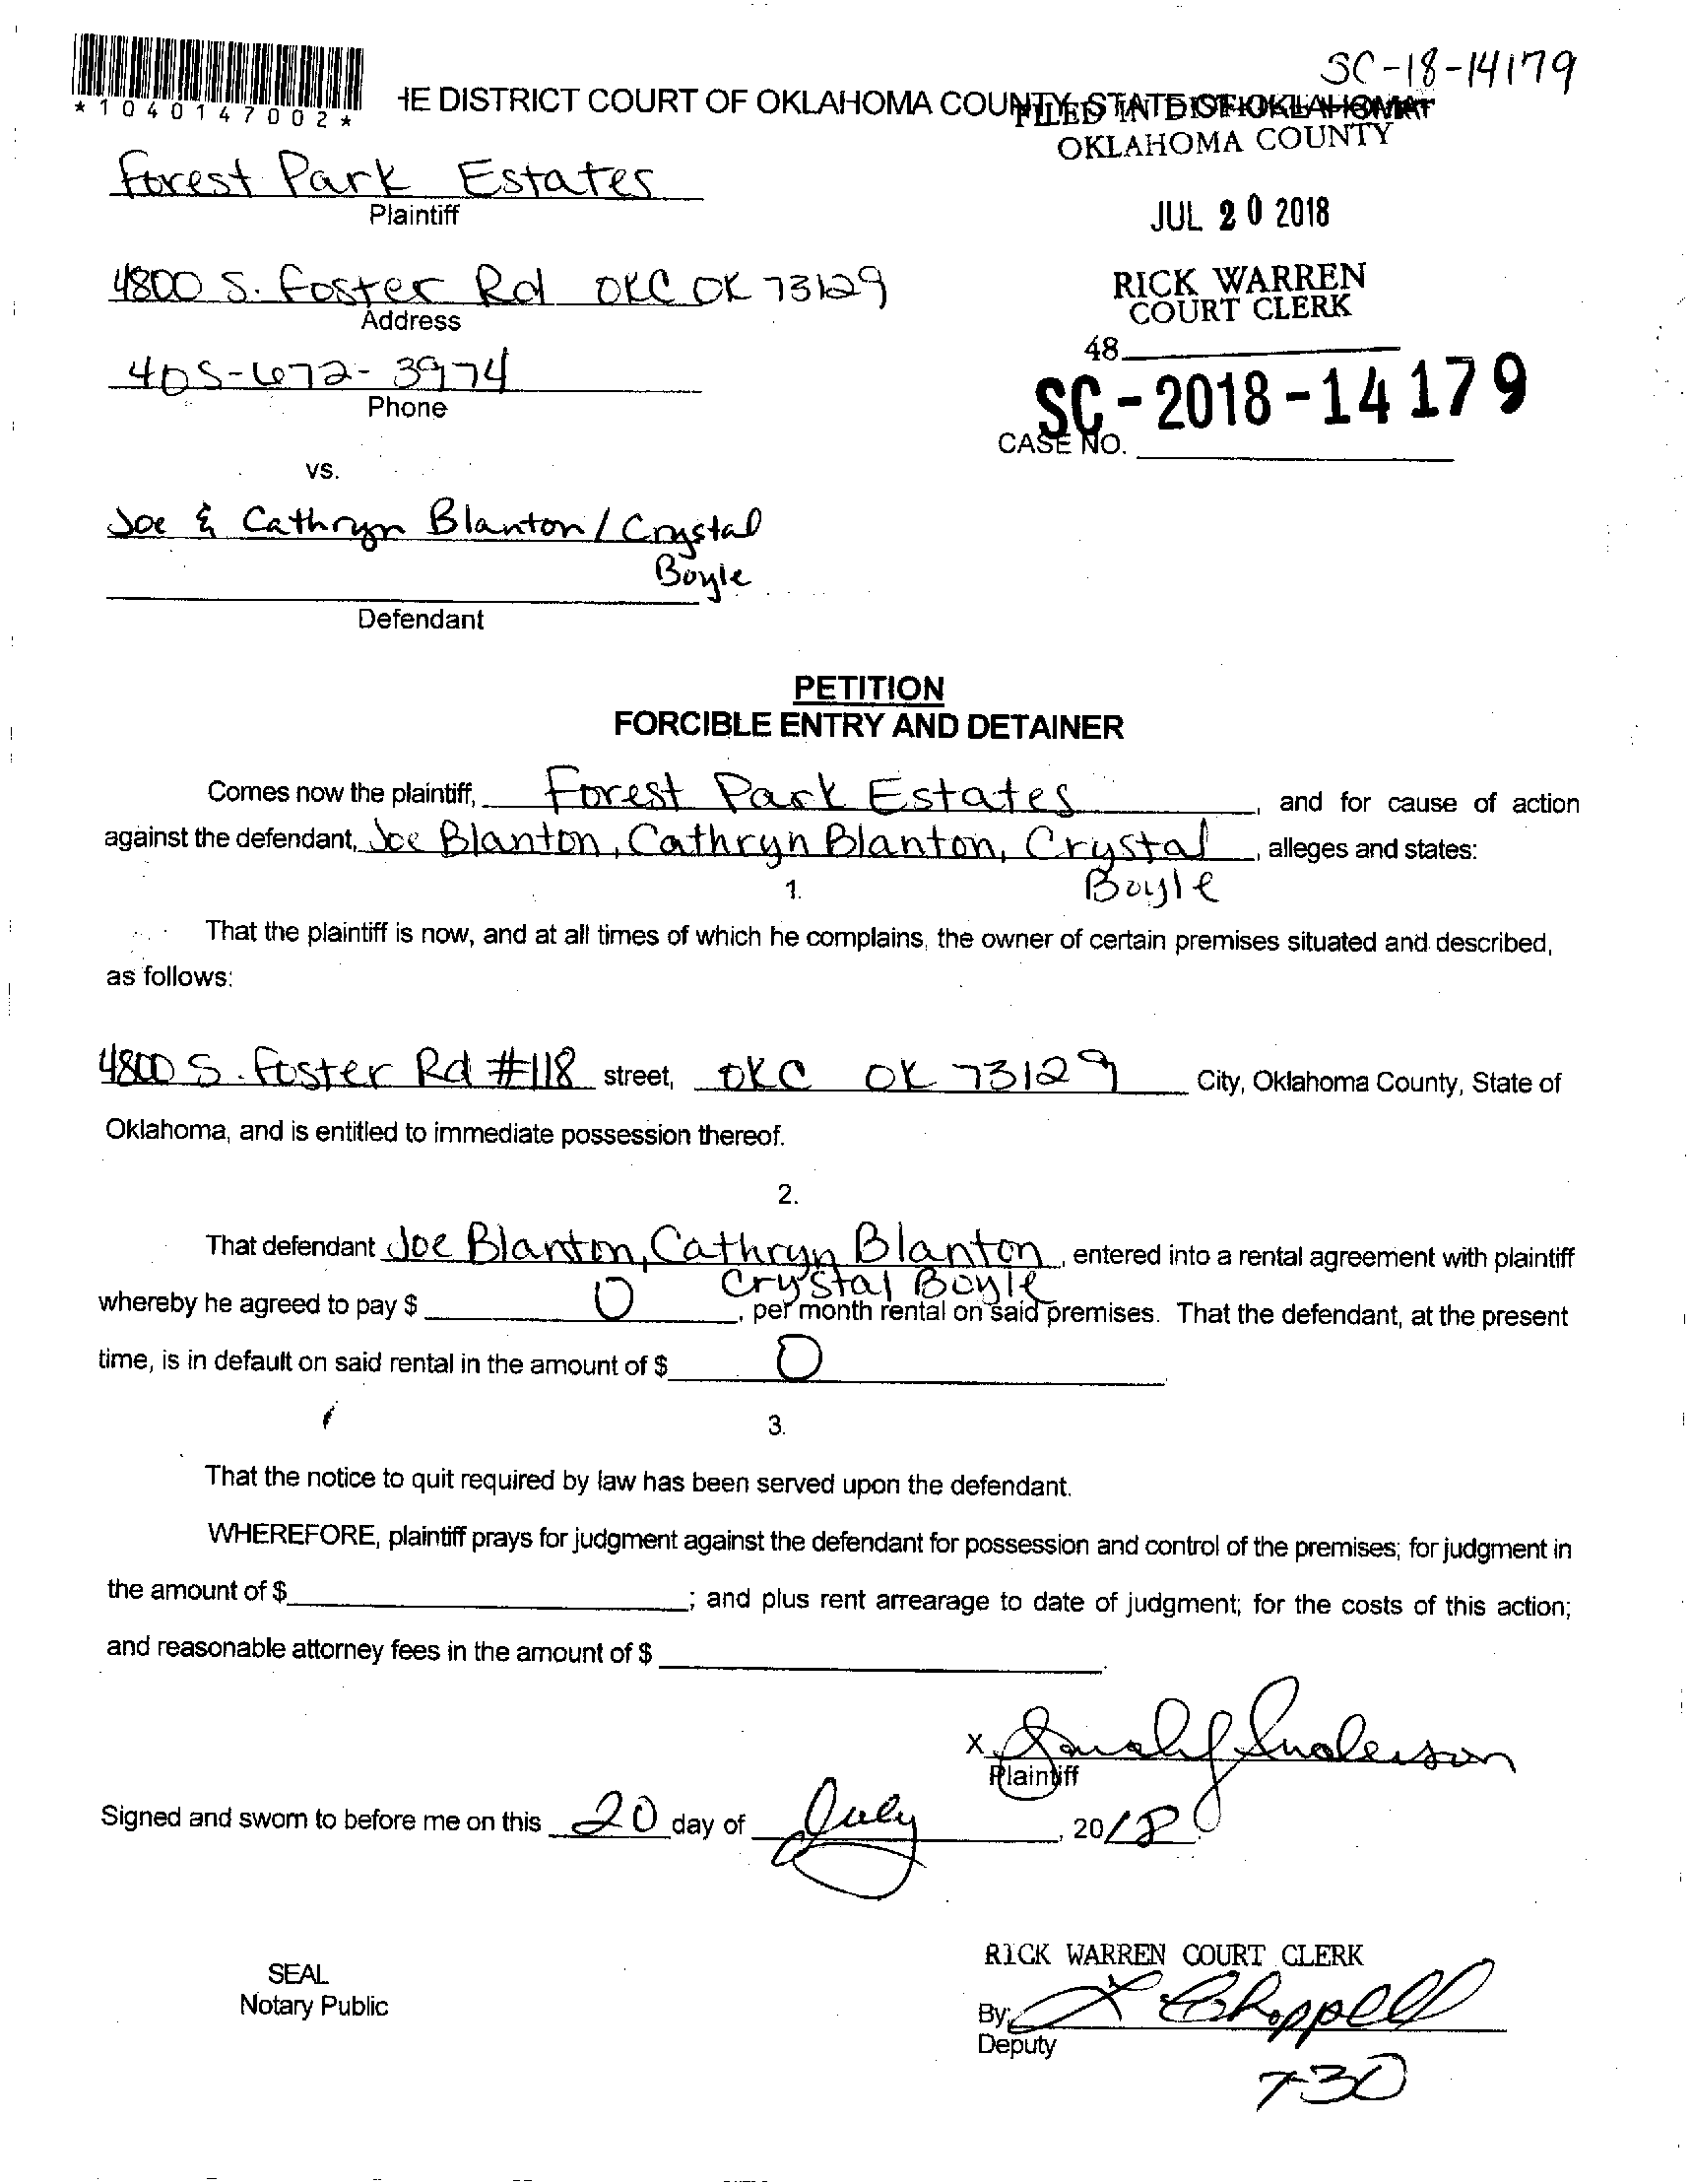 SC-18-14179
*1040147002*
HE DISTRICT COURT OF OKLAHOMA COUNTY, STATE OF OKLAHOMA
FILED IN DISTRICT
OKLAHOMA COUNTY
Forest Park Estates
Plaintiff
JUL 20 2018
4800 S. Foster Rd OKC OK 73129
Address
RICK WARREN
COURT CLERK
405-672-3974
Phone
48
SC-2018-14179
CASE NO.
vs.
Joe & Cathryn Blanton / Crystal
Boyle
Defendant
PETITION
FORCIBLE ENTRY AND DETAINER
Comes now the plaintiff, Forest Park Estates, and for cause of action
against the defendant, Joe Blanton, Cathryn Blanton, Crystal, alleges and states:
Boyle
1.
That the plaintiff is now, and at all times of which he complains, the owner of certain premises situated and described,
as follows:
4800 S. Foster Rd #118 street, OKC OK 73129 City, Oklahoma County, State of
Oklahoma, and is entitled to immediate possession thereof.
2.
That defendant Joe Blanton, Cathryn Blanton, entered into a rental agreement with plaintiff
Crystal Boyle
whereby he agreed to pay $ 0, per month rental on said premises. That the defendant, at the present
time, is in default on said rental in the amount of $ 0
3.
That the notice to quit required by law has been served upon the defendant.
WHEREFORE, plaintiff prays for judgment against the defendant for possession and control of the premises; for judgment in
the amount of $ ; and plus rent arrearage to date of judgment; for the costs of this action;
and reasonable attorney fees in the amount of $ .
x Anderson
Plaintiff
Signed and sworn to before me on this 20 day of July, 2018.
RICK WARREN COURT CLERK
SEAL
Notary Public
By: Chappell
Deputy
7-30